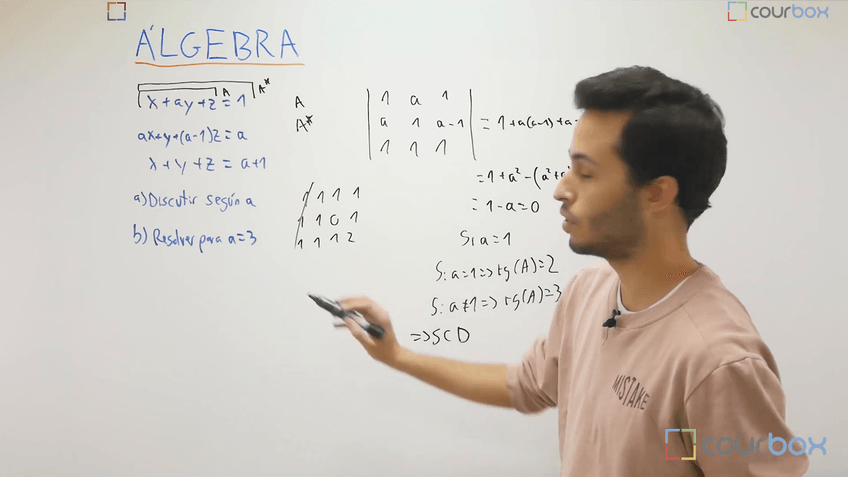 courbox
ÁLGEBRA
A A*
x + ay + z = 1
ax+y+(a-1)z = a
x + y + z = a+1
a) Discutir según a
b) Resolver para a=3
A
A*
1 a 1
a 1 a-1 = 1+a(a-1)+a-
1 1 1
= 1+a²-(a²+
= 1-a=0
1 1 1 1
1 1 0 1
1 1 1 2
Si a=1
Si a=1 => rg(A)=2
Si a≠1 => rg(A)=3
=> SCD
MISTAKE
courbox